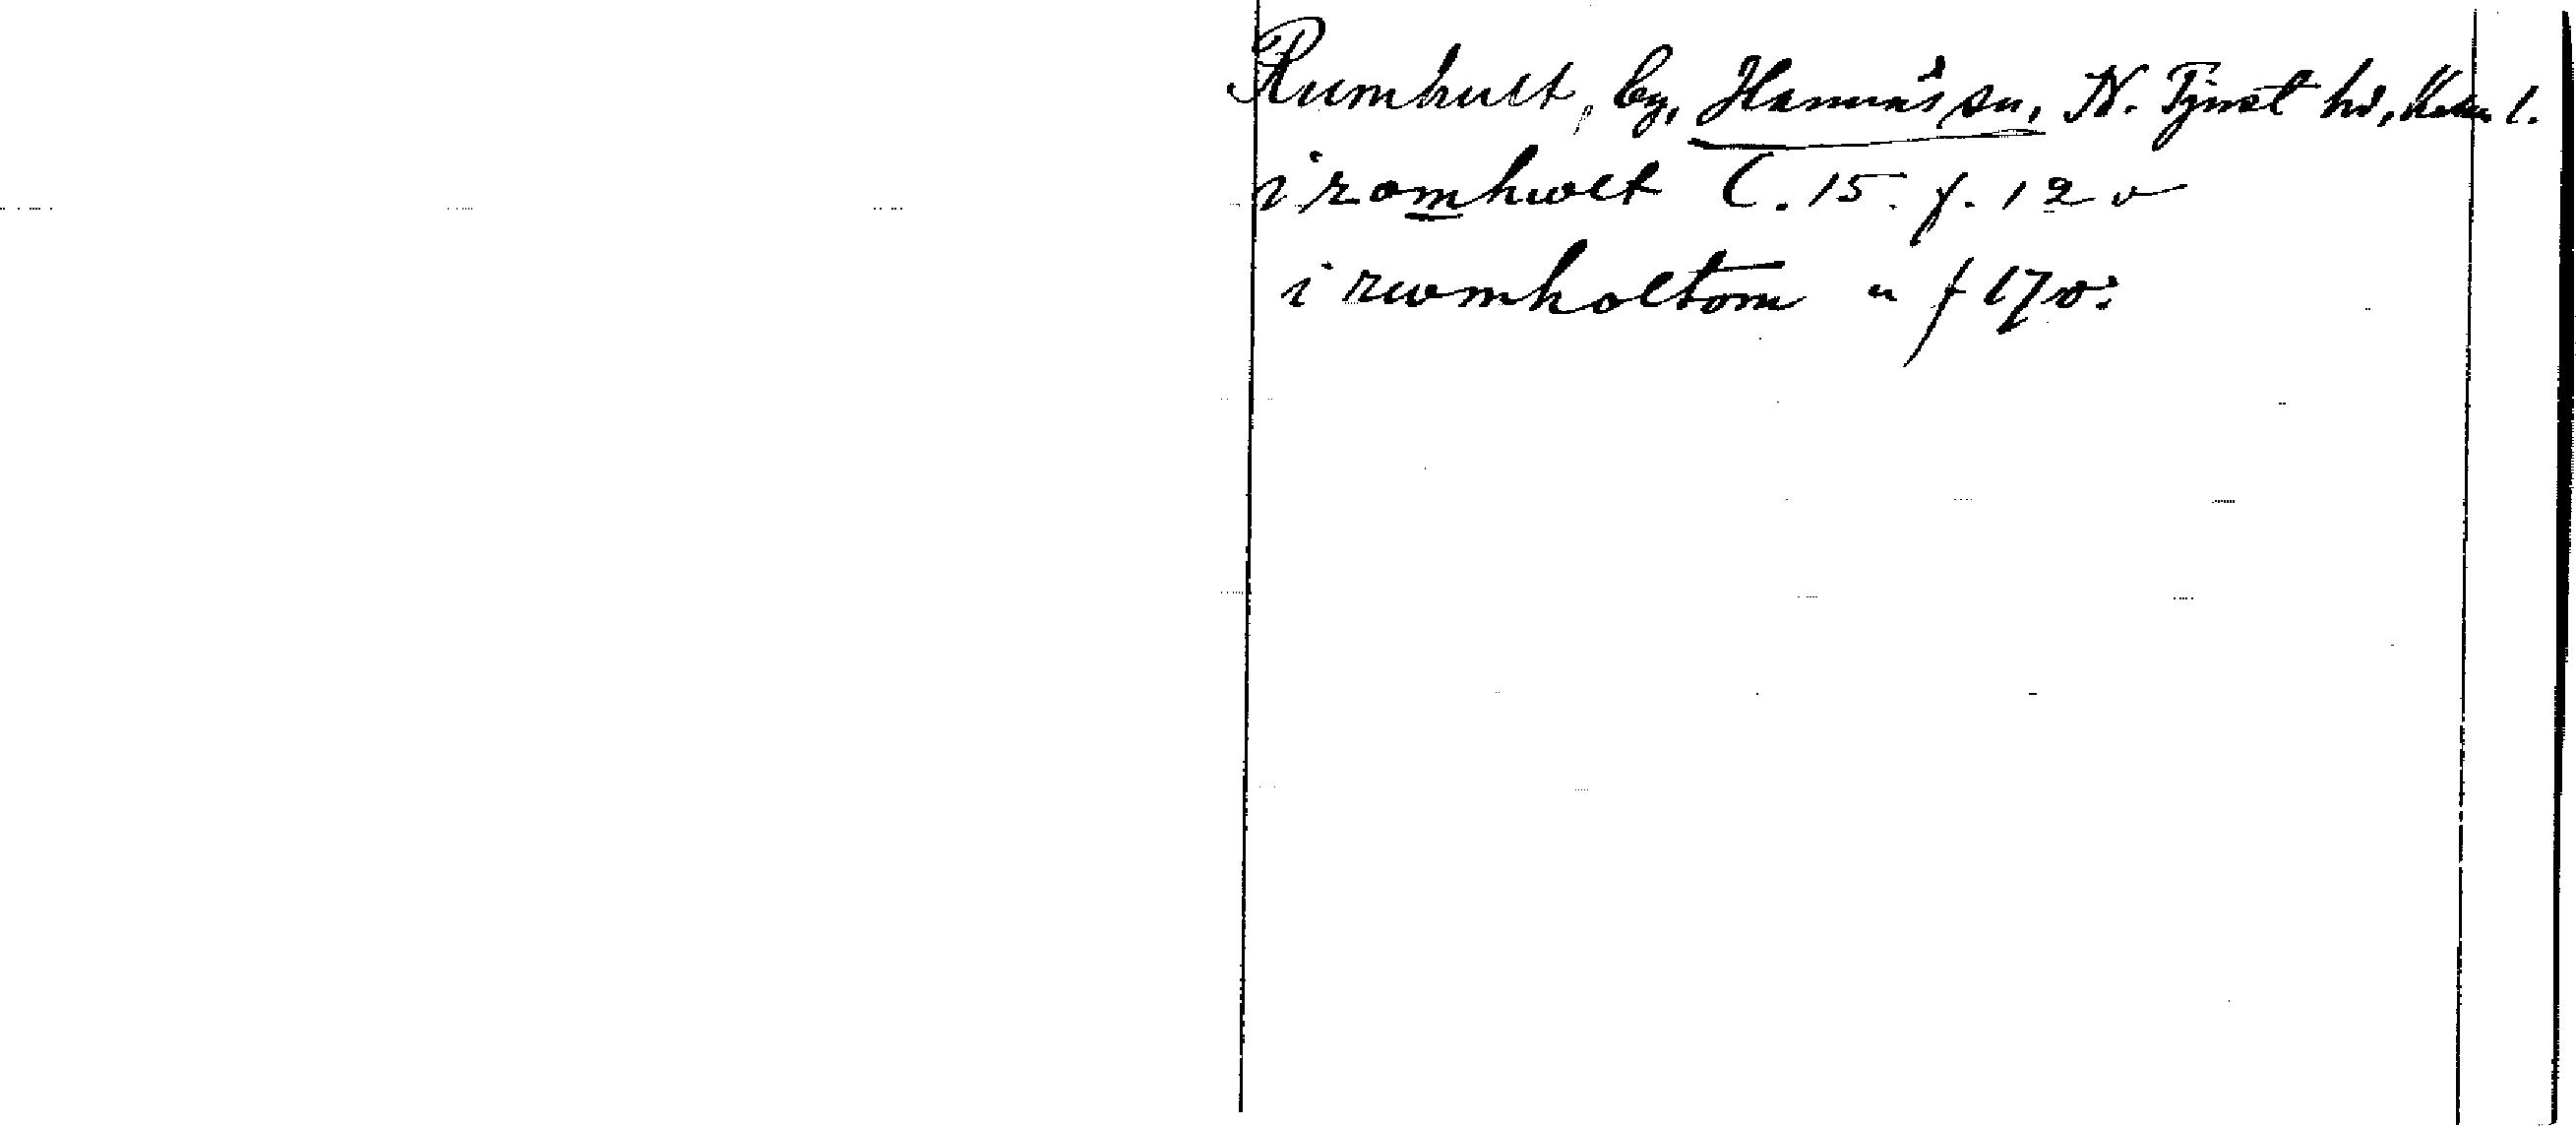 Rumhult, by, Hannäs sn, N. Tjust hd, Kalm l.
i romhwlt C. 15. f. 12 v
i rwmholtom " f 17 v: